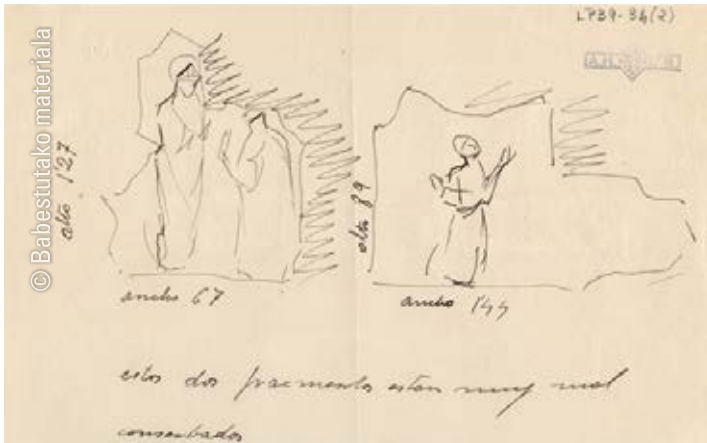 LP39-34(2)
© Babestutako materiala
alto 127
ancho 67
alto 89
ancho 144
estos dos fracmentos estan muy mal
conserbados